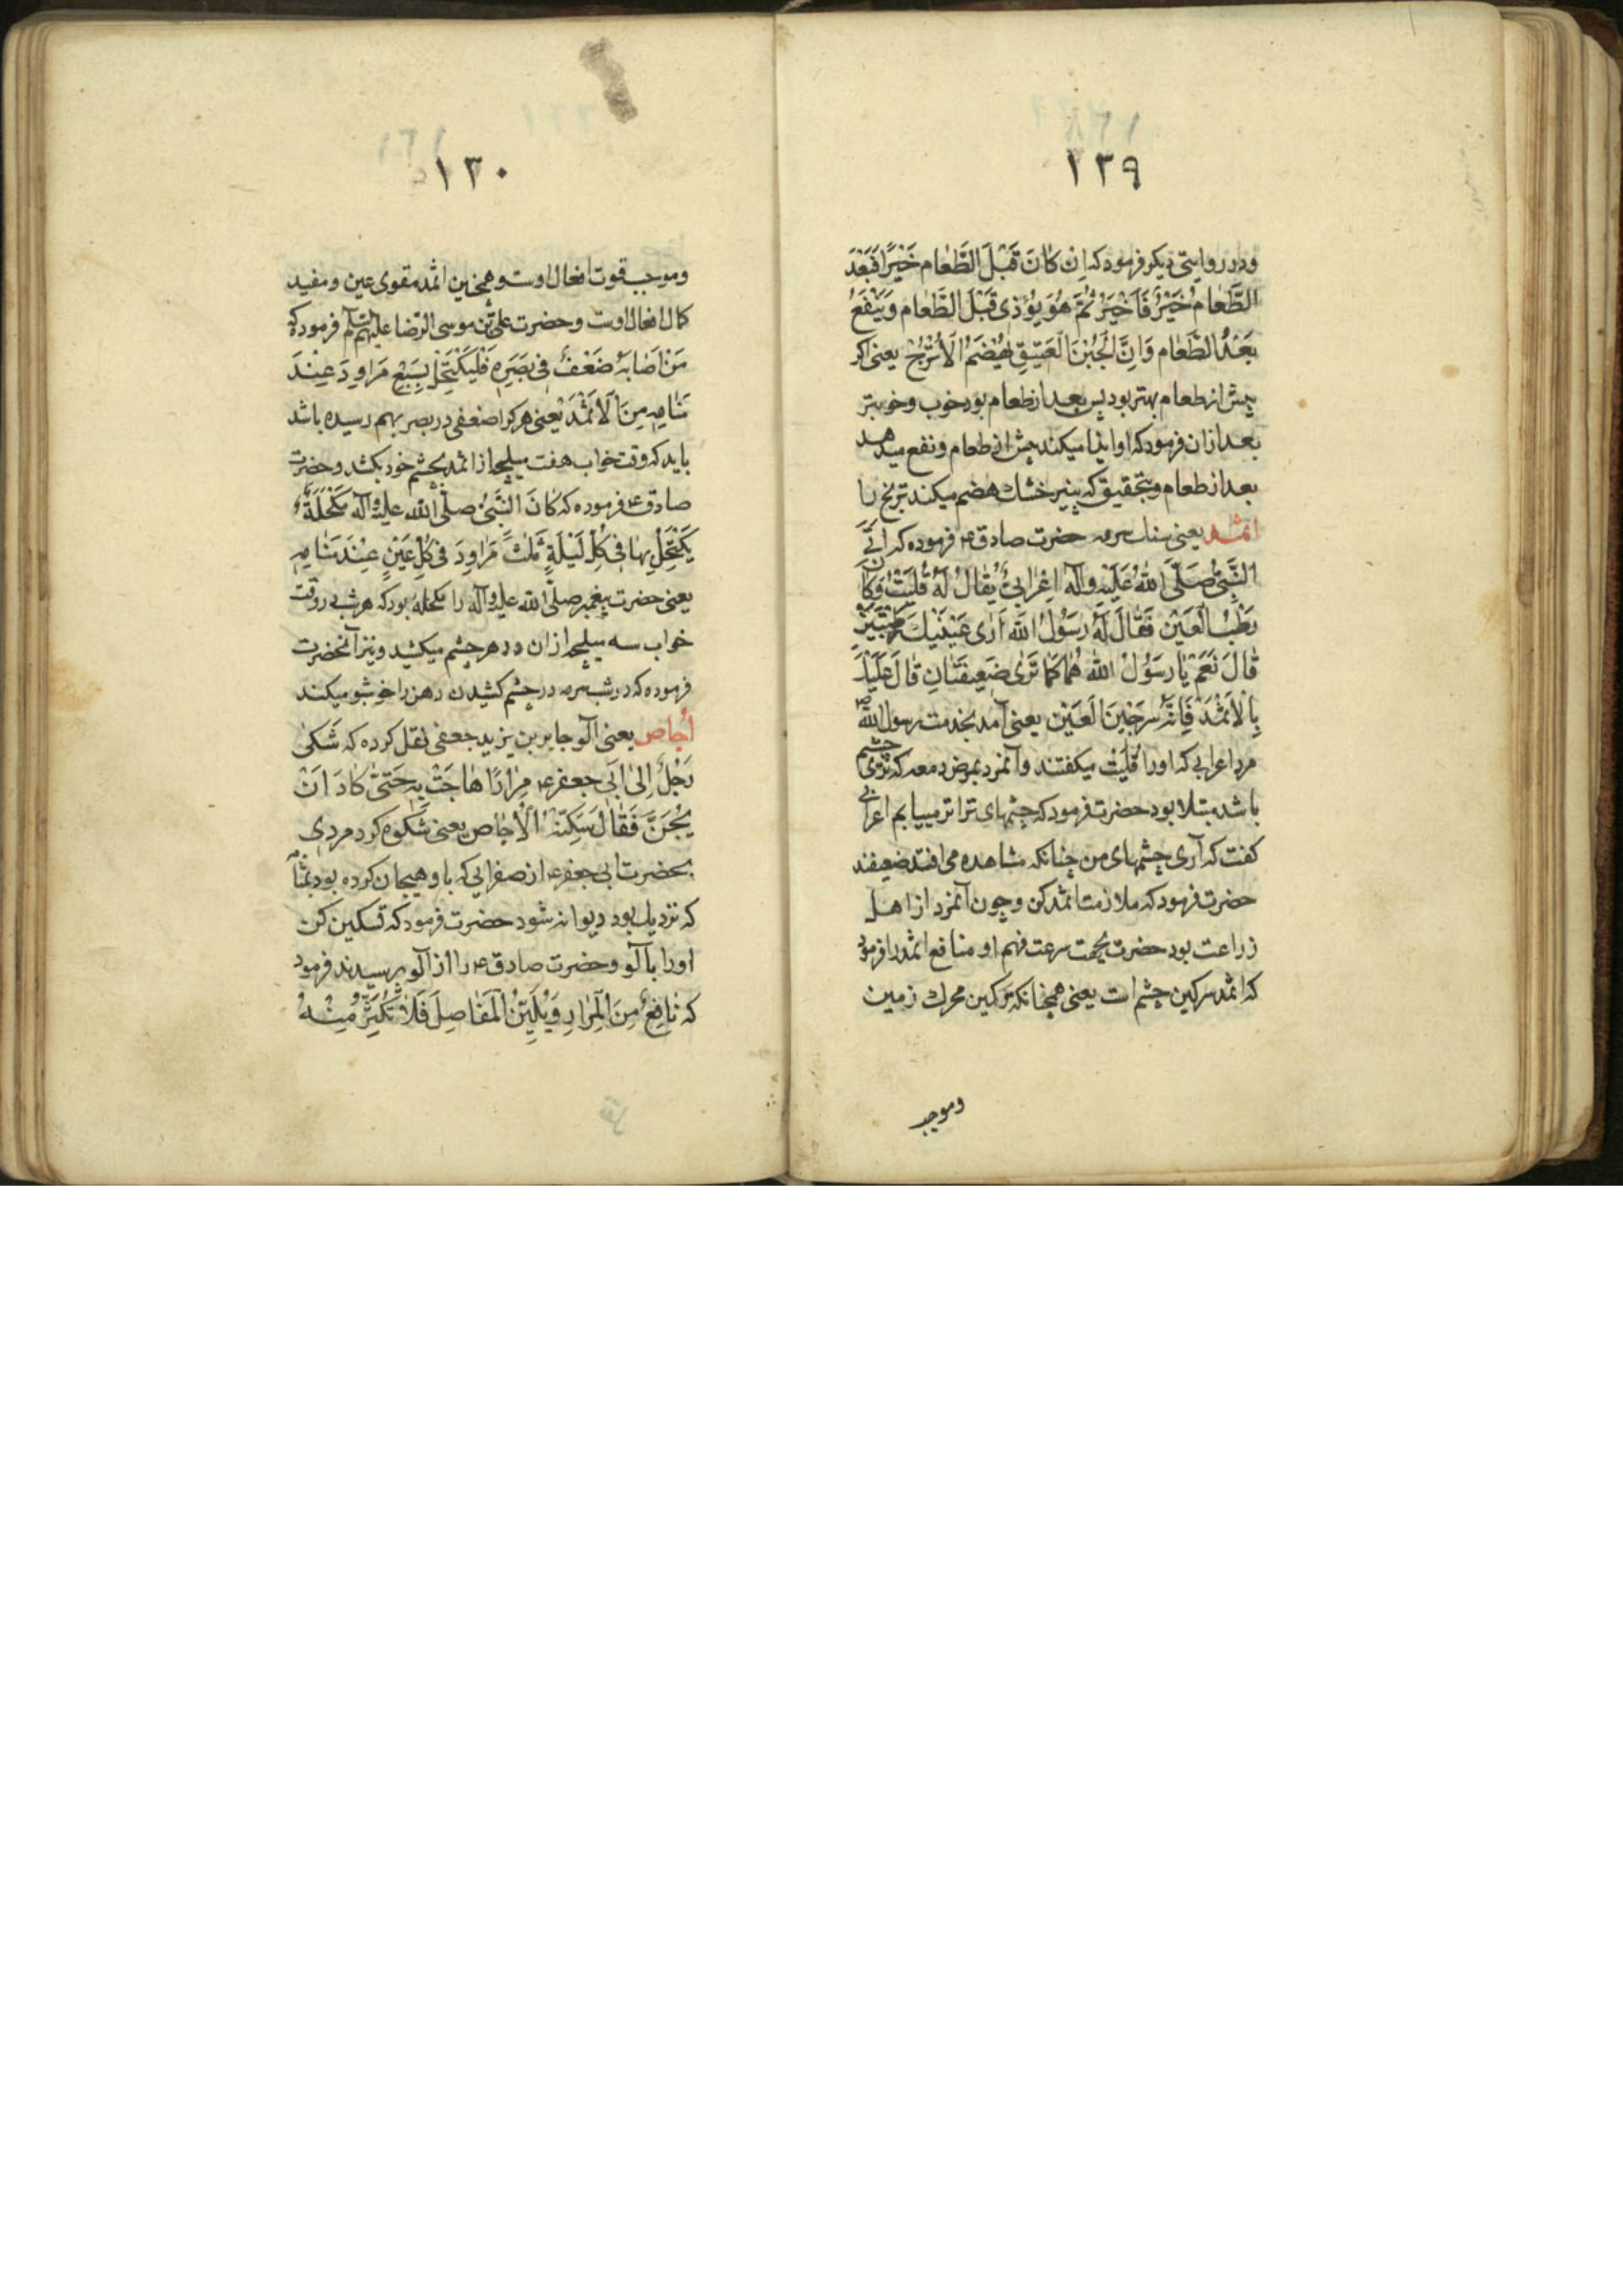 ۱۳۹
و در روایتی دیکر فرمود که اِن کَانَ قَبْلَ الطَّعَام خَیْرًا فَبَعْدَ
الطَّعَامُ خَیْرٌ فَاَخْیَرْ ثُمَّ هُوَ یُؤْذِی قَبْلَ الطَّعَام وَیَنْفَعُ
بَعْدَ الطَّعَام وَاِنَّ الْجُبْنَ الْعَتِیقِ یُهْضَمُ الْاُتْرُجْ یعنی اکر
پیش از طعام بهتر بود پس بعد از طعام بود خوب و خوبتر
بعد ازان فرمود که او ایذا میکند پیش از طعام و نفع میدهد
بعد از طعام و بتحقیق که پنیر خشك هضم میکند ترنج را
اثمد یعنی سنك سرمه حضرت صادق ع فرموده که اَتَی
النَّبِیَّ صَلَّی اللهُ عَلَیْهِ وآله اِعْرَابِیٌّ یُقَالُ لَهُ قُلَیْتْ وَکَانَ
رَطْبُ الْعَیْنِ فَقَالَ لَهُ رَسُولُ الله اَرٰی عَیْنَیْكَ رَطْبَتَیْنِ
قَالَ نَعَمْ یَا رَسُولْ الله هُمَا کَمَا تَرٰی ضَعِیفَتَانِ قَالَ عَلَیْكَ
بِالْاَثْمَدْ فَاِنَّهُ سِرْجِینَ الْعَیْن یعنی آمد بخدمت رسول الله ص
مرد اعرابی که او را قُلَیْت میکفتند و آنمرد بمرض دمعه که تری چشم
باشد مبتلا بود حضرت فرمود که چشمهای ترا تر میبیابم اعرابی
کفت که آری چشمهای من چنانکه مشاهده می افتد ضعیفند
حضرت فرمود که ملازمت اثمد کن و چون آنمرد از اهل
زراعت بود حضرت بجهت سرعت فهم او منافع اثمد را فرمود
که اثمد سرکین چشم است یعنی همچنانکه سرکین محرك زمین
وموجب
۱۳۰
وموجب قوت افعال اوست وهمچنین اثمد مقوی عین و مفید
کمال افعال اوست وحضرت علی بن موسی الرّضا علیهم السّلم فرموده که
مَنْ اَصَابَهُ ضَعْفٌ فِی بَصَرِهِ فَلْیَکْتَحِلْ بِسَبْعِ مَرَاوِدَ عِنْدَ
مَنَامِهِ مِنَ الْاَثْمَدْ یعنی هر کرا ضعفی در بصر بهم رسیده باشد
باید که وقت خواب هفت میلچه از اثمد بچشم خود بکشد و حضرت
صادق ع فرموده که کَانَ النَّبِیُّ صلّی الله علیه وآله مَکْحَلَةٌ
یَکْتَحِلُ بِهَا فِی کُلِّ لَیْلَةٍ ثَلٰثَ مَرَاوِدَ فِی کُلِّ عَیْنٍ عِنْدَ مَنَامِهِ
یعنی حضرت پیغمبر صلّی الله علیه وآله را مکحله بود که هر شب در وقت
خواب سه میلچه ازان در هر چشم میکشید و نیز آنحضرت
فرموده که در شب سرمه در چشم کشیدن دهن را خوشبو میکند
اُجاص یعنی آلو جابر بن یزید جعفی نقل کرده که شَکٰی
رَجُلٌ اِلٰی اَبِی جعفر ع مِرَارًا هَاجَتْ بِهِ حَتّٰی کَادَ اَنْ
یُجَنَّ فَقَالَ سَکِّنْهُ الْاُجَاص یعنی شکوه کرد مردی
بحضرت ابی جعفر ع از صفرایی که باو هیجان کرده بود بمثابه
که نزدیك بود دیوانه شود حضرت فرمود که تسکین کن
او را با آلو و حضرت صادق ع را از آلو پرسیدند فرمود
که نَافِعٌ مِنَ الْمِرَارِ وَیُلَیِّنُ الْمَفَاصِلَ فَلَا تُکَثِّرْ مِنْهُ